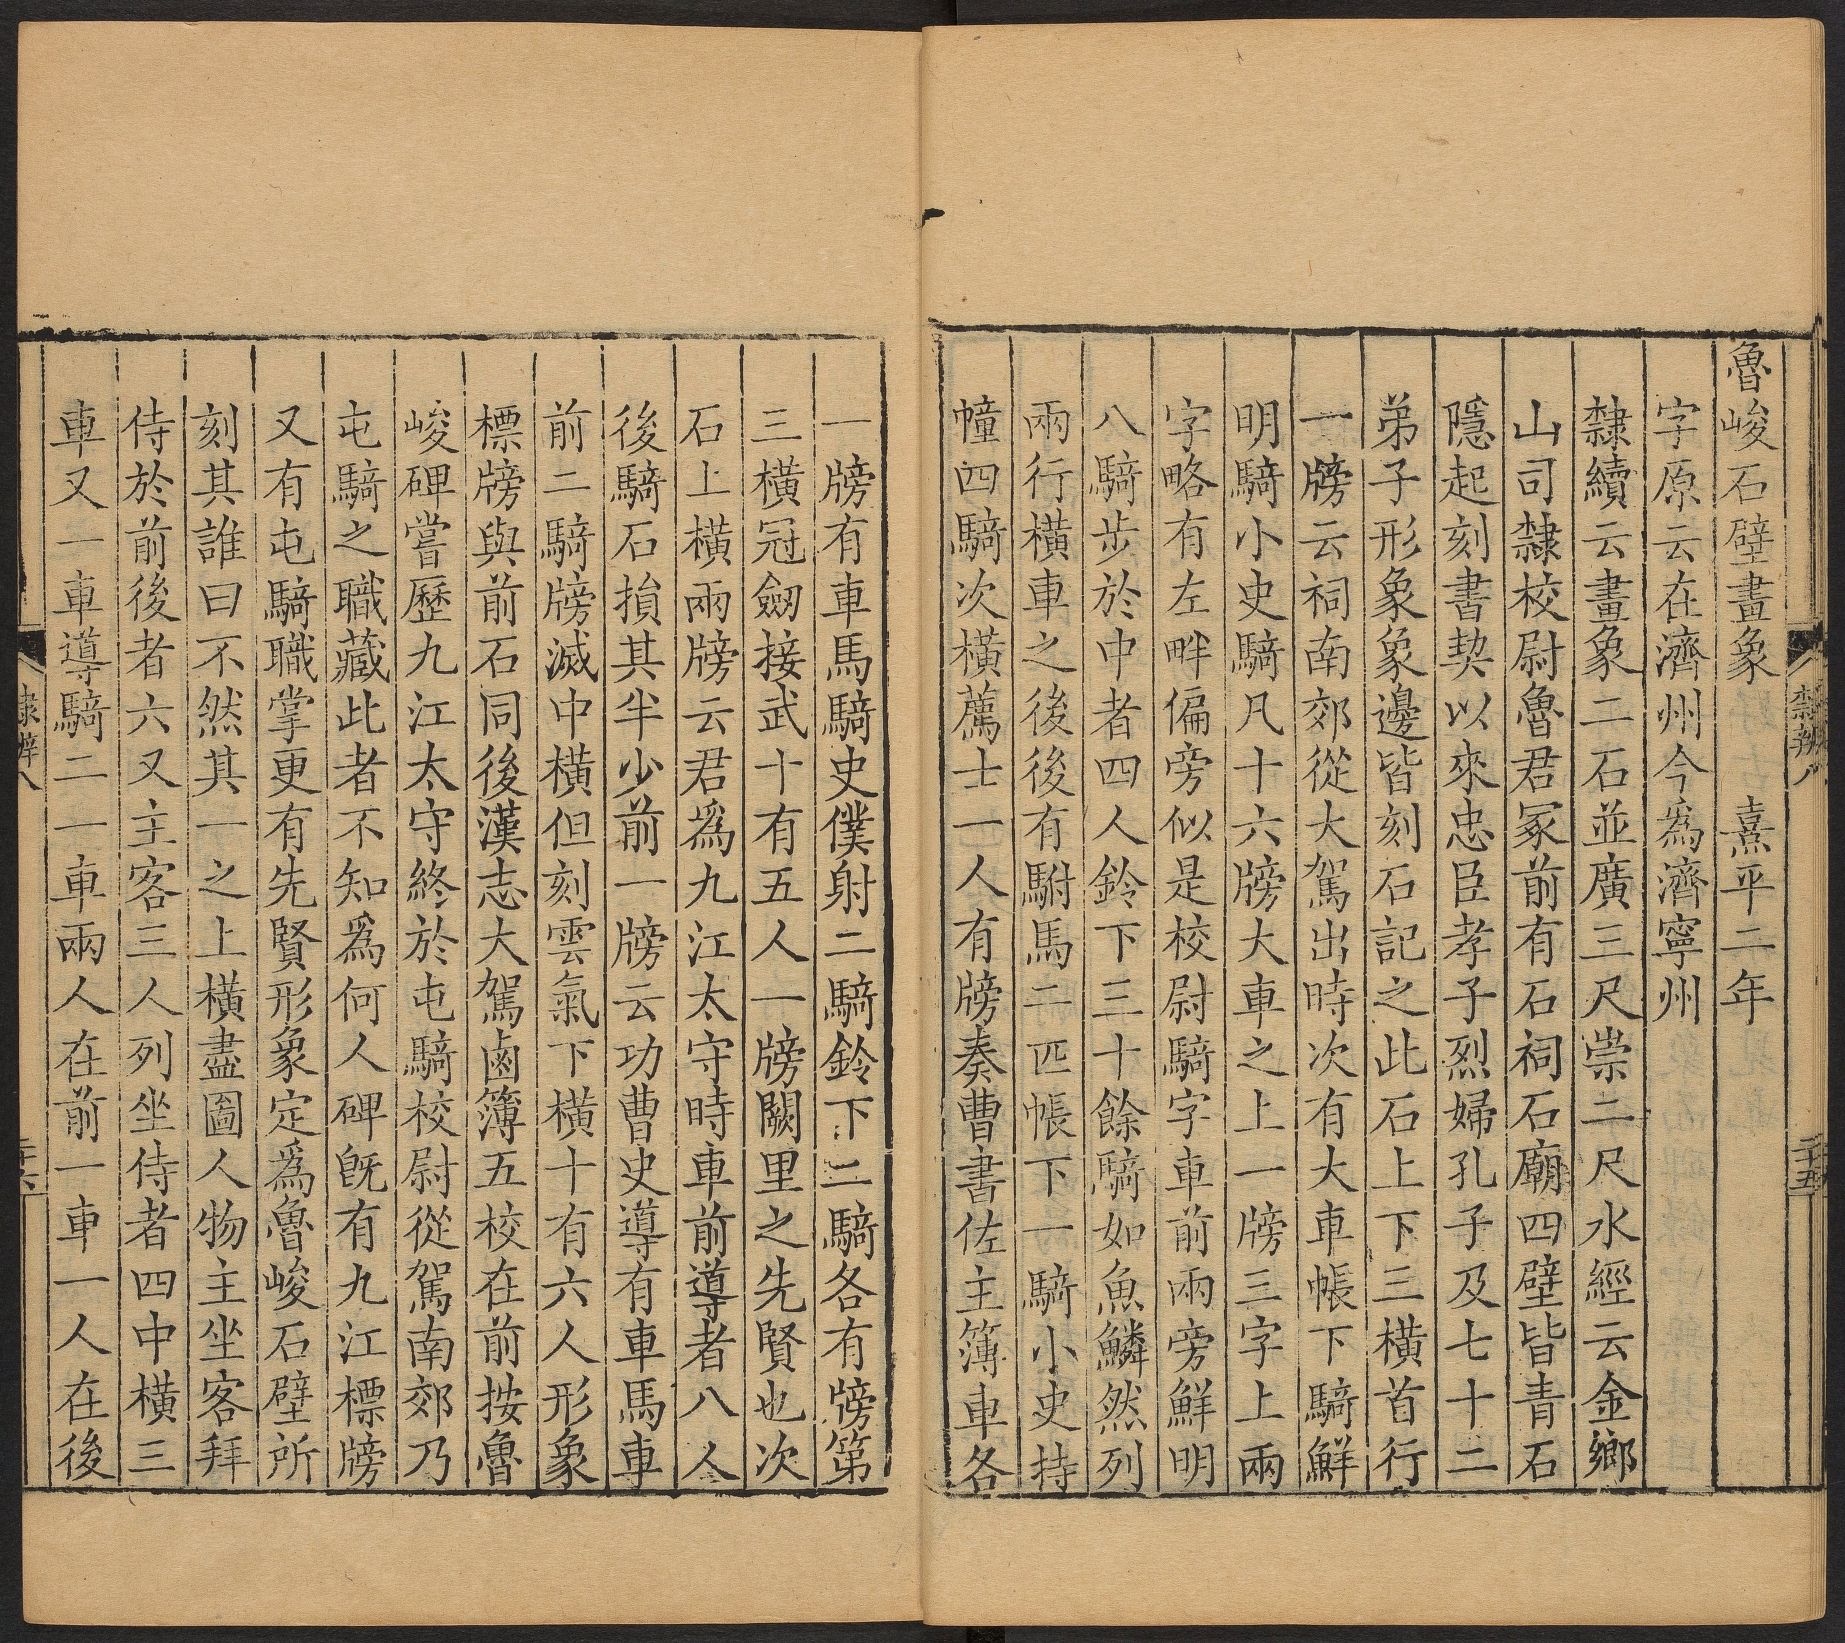 魯峻石壁畫象　熹平二年
字原云在濟州今爲濟寧州
隸續云畫象二石並廣三尺崇二尺水經云金鄉
山司隸校尉魯君冢前有石祠石廟四壁皆青石
隱起刻書契以來忠臣孝子烈婦孔子及七十二
弟子形象象邊皆刻石記之此石上下三橫首行
一牓云祠南郊從大駕出時次有大車帳下騎鮮
明騎小史騎凡十六牓大車之上一牓三字上兩
字略有左畔偏旁似是校尉騎字車前兩旁鮮明
八騎步於中者四人鈴下三十餘騎如魚鱗然列
兩行橫車之後後有駙馬二匹帳下一騎小史持
幢四騎次橫薦士一人有牓奏曹書佐主簿車各
一牓有車馬騎史僕射二騎鈴下二騎各有牓第
三橫冠劒接武十有五人一牓闕里之先賢也次
石上橫兩牓云君爲九江太守時車前導者八人
後騎石損其半少前一牓云功曹史導有車馬車
前二騎牓滅中橫但刻雲氣下橫十有六人形象
標牓與前石同後漢志大駕鹵簿五校在前按魯
峻碑嘗歷九江太守終於屯騎校尉從駕南郊乃
屯騎之職藏此者不知爲何人碑旣有九江標牓
又有屯騎職掌更有先賢形象定爲魯峻石壁所
刻其誰曰不然其一之上橫盡圖人物主坐客拜
侍於前後者六又主客三人列坐侍者四中橫三
車又一車導騎二一車兩人在前一車一人在後
隸辨八
二十五
隸辨八